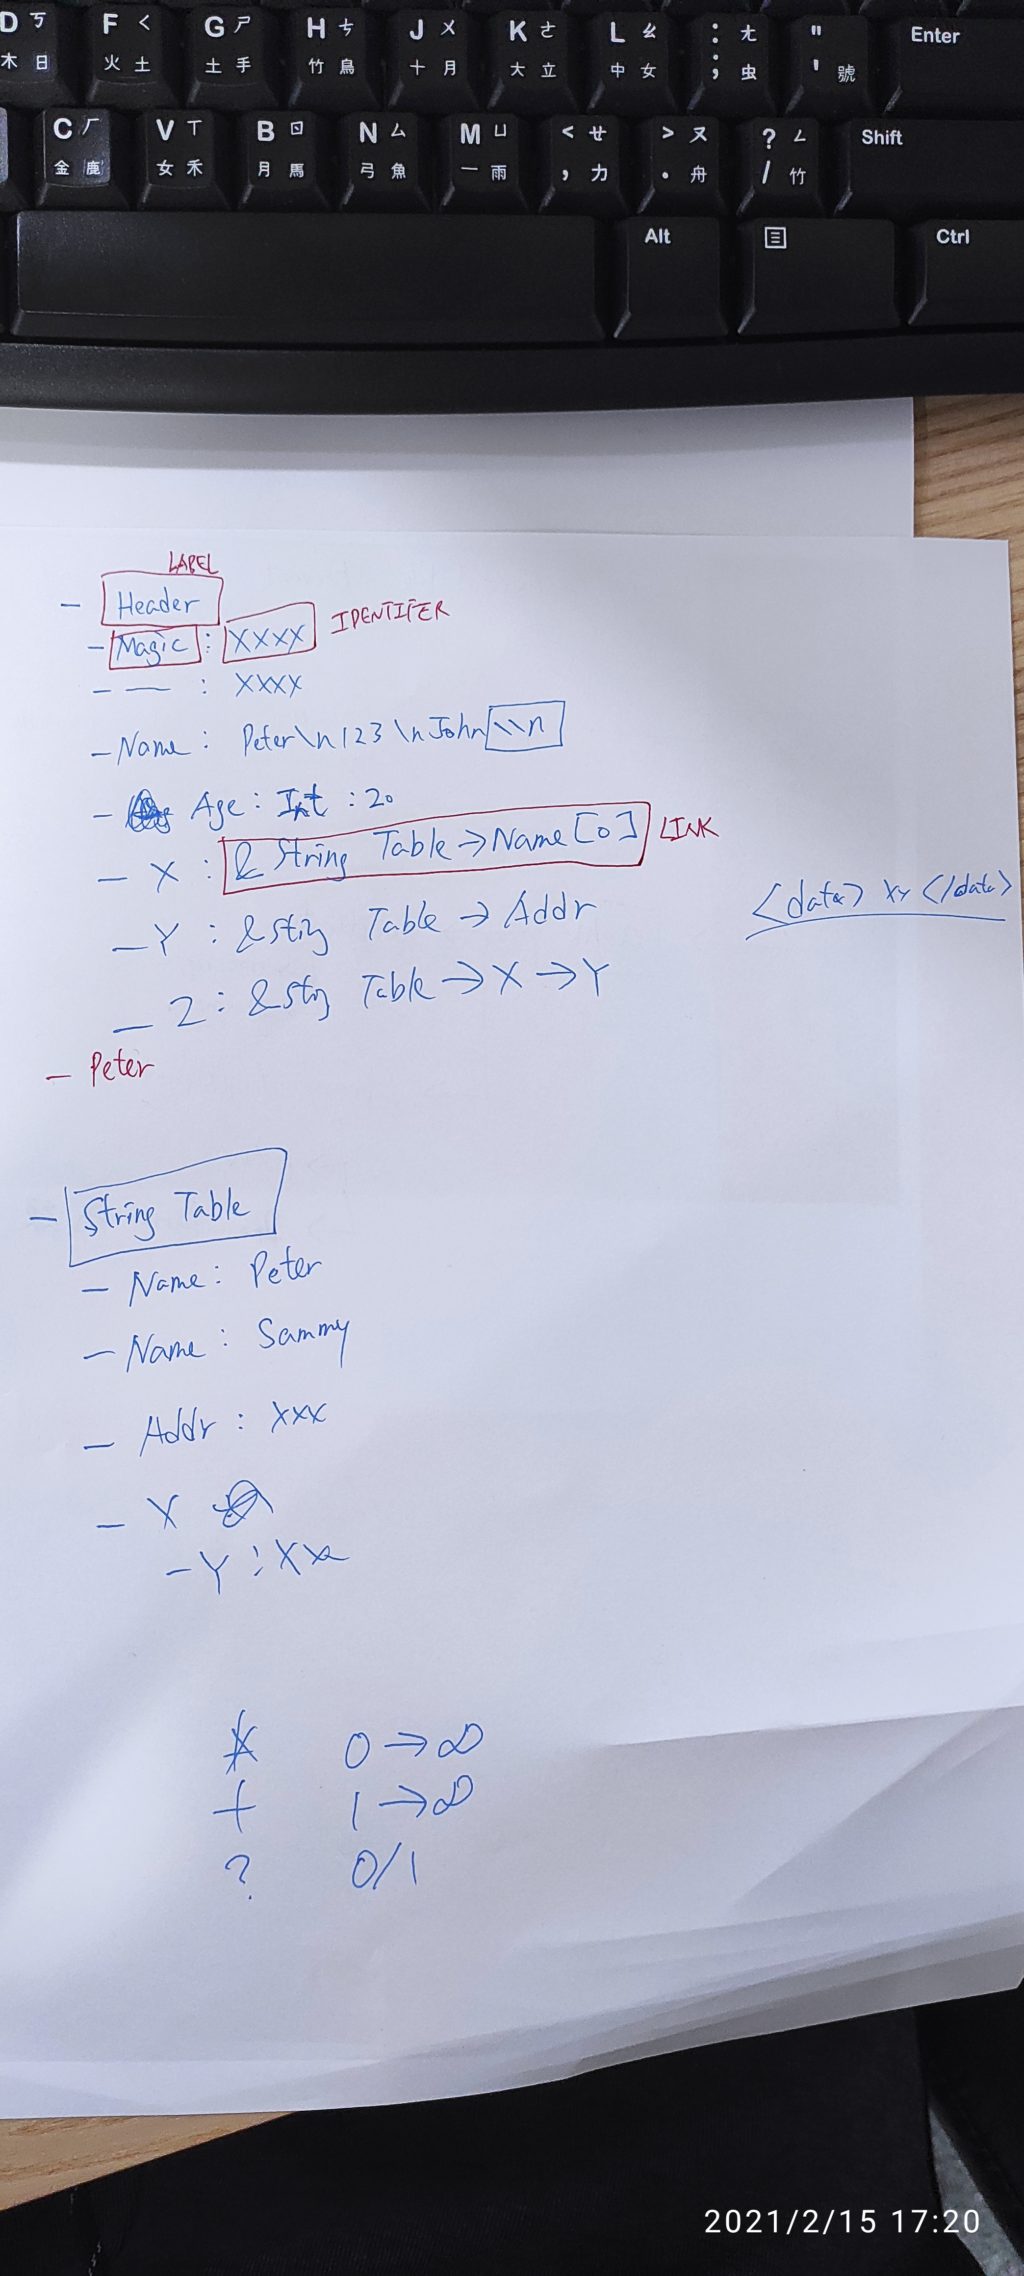 D ㄎ F ㄑ G ㄕ H ㄘ J ㄨ K ㄜ L ㄠ : ㄤ " Enter
木 日 火 土 土 手 竹 鳥 十 月 大 立 中 女 ; 虫 ' 號
C ㄏ V ㄒ B ㄖ N ㄙ M ㄩ < ㄝ > ㄡ ? ㄥ Shift
金 鹿 女 禾 月 馬 弓 魚 一 雨 , 力 . 舟 / 竹
Alt Ctrl
LABEL
- Header
- Magic : XXXX IDENTIFER
- — : XXXX
- Name : Peter\n123\nJohn\\n
- Age : Int : 20
- X : & String Table → Name [0] LINK
- Y : & String Table → Addr
<data> xy </data>
- Z : & String Table → X → Y
- Peter
- String Table
- Name : Peter
- Name : Sammy
- Addr : xxx
- X
- Y : XX
* 0 → ∞
+ 1 → ∞
? 0/1
2021/2/15 17:20